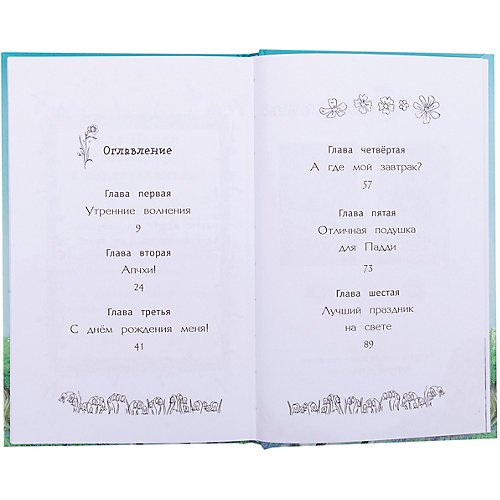 Оглавление
Глава первая
Утренние волнения
9
Глава вторая
Апчхи!
24
Глава третья
С днём рождения меня!
41
Глава четвёртая
А где мой завтрак?
57
Глава пятая
Отличная подушка
для Падди
73
Глава шестая
Лучший праздник
на свете
89